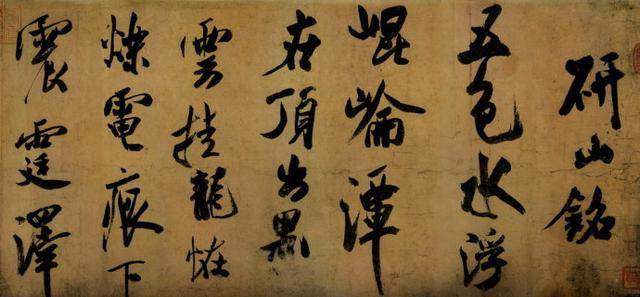 研山銘
五色水浮
崐崘潭
在頂出黑
雲挂龍恠
爍電痕下
震霆澤